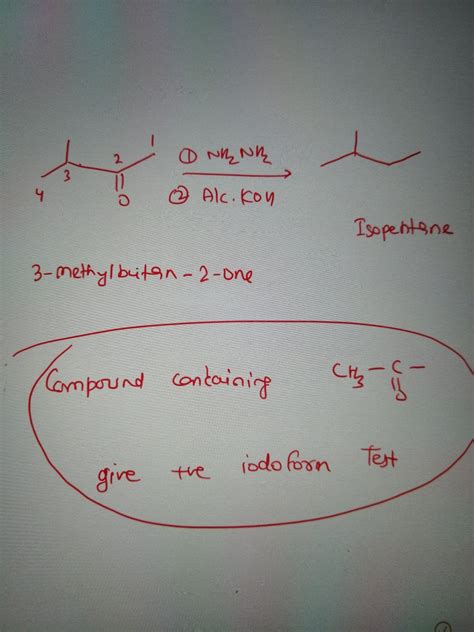 1
2
① NH2 NH2
3
4
O
② Alc. KOH
Isopentane
3-methylbutan-2-one
Compound containing CH3 - C -
O
give +ve iodoform Test